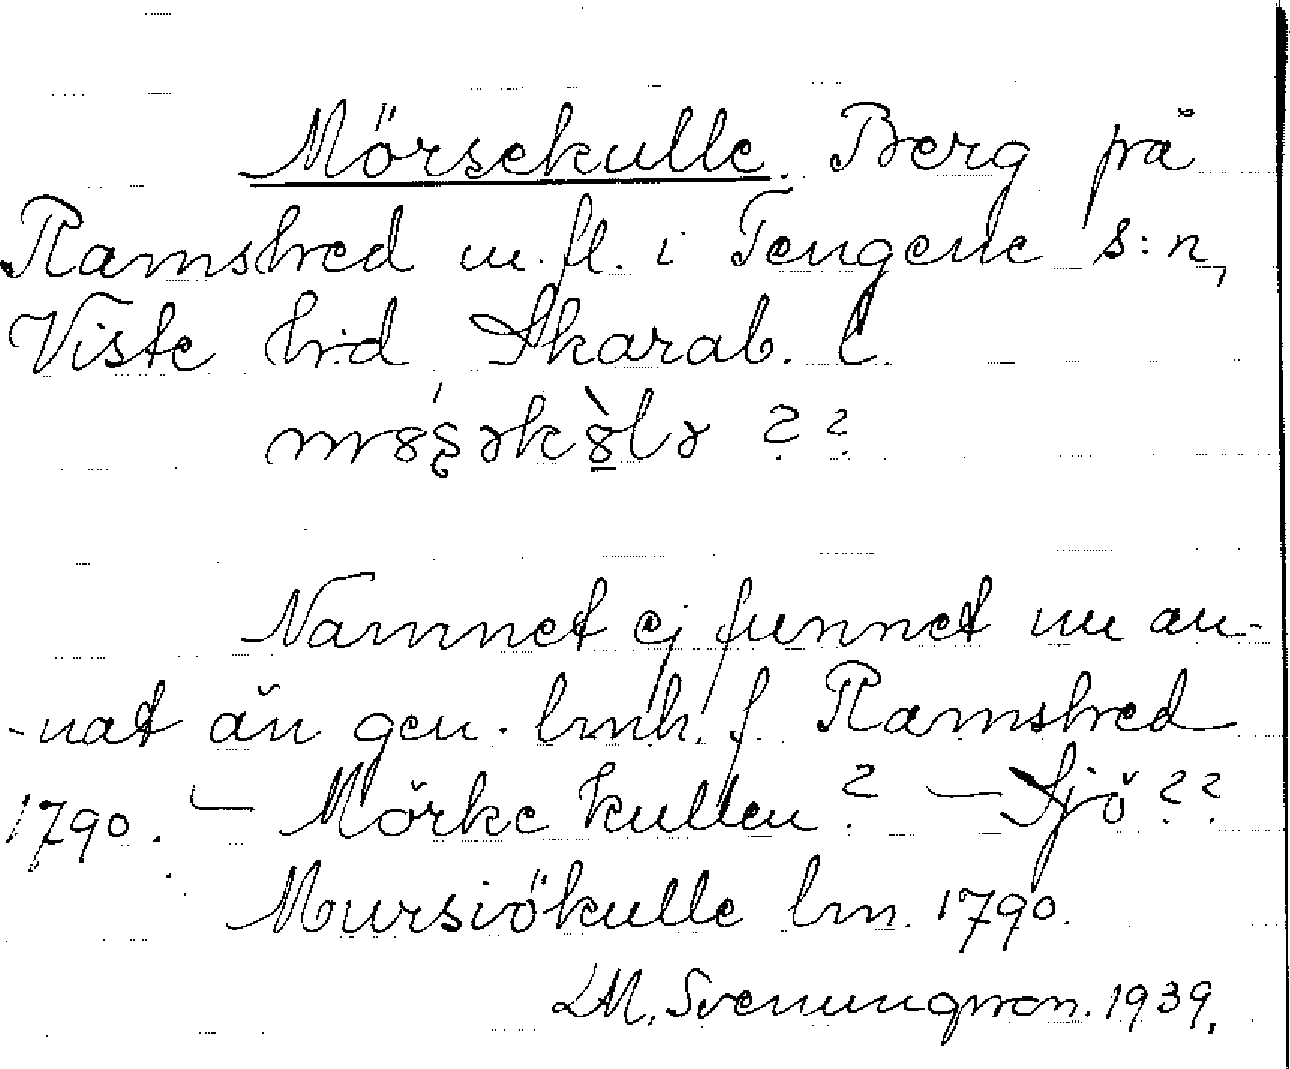 Mörsekulle. Berg på
Ramshed m. fl. i Tengene s:n,
Viste hrd Skarab. l.
Namnet ej funnet nu an-
-nat än gen. lmh. f. Ramshed
1790. — Mörke kullen? — Sjö??
Mursiökulle lm. 1790.
LM. Svenungsson. 1939.